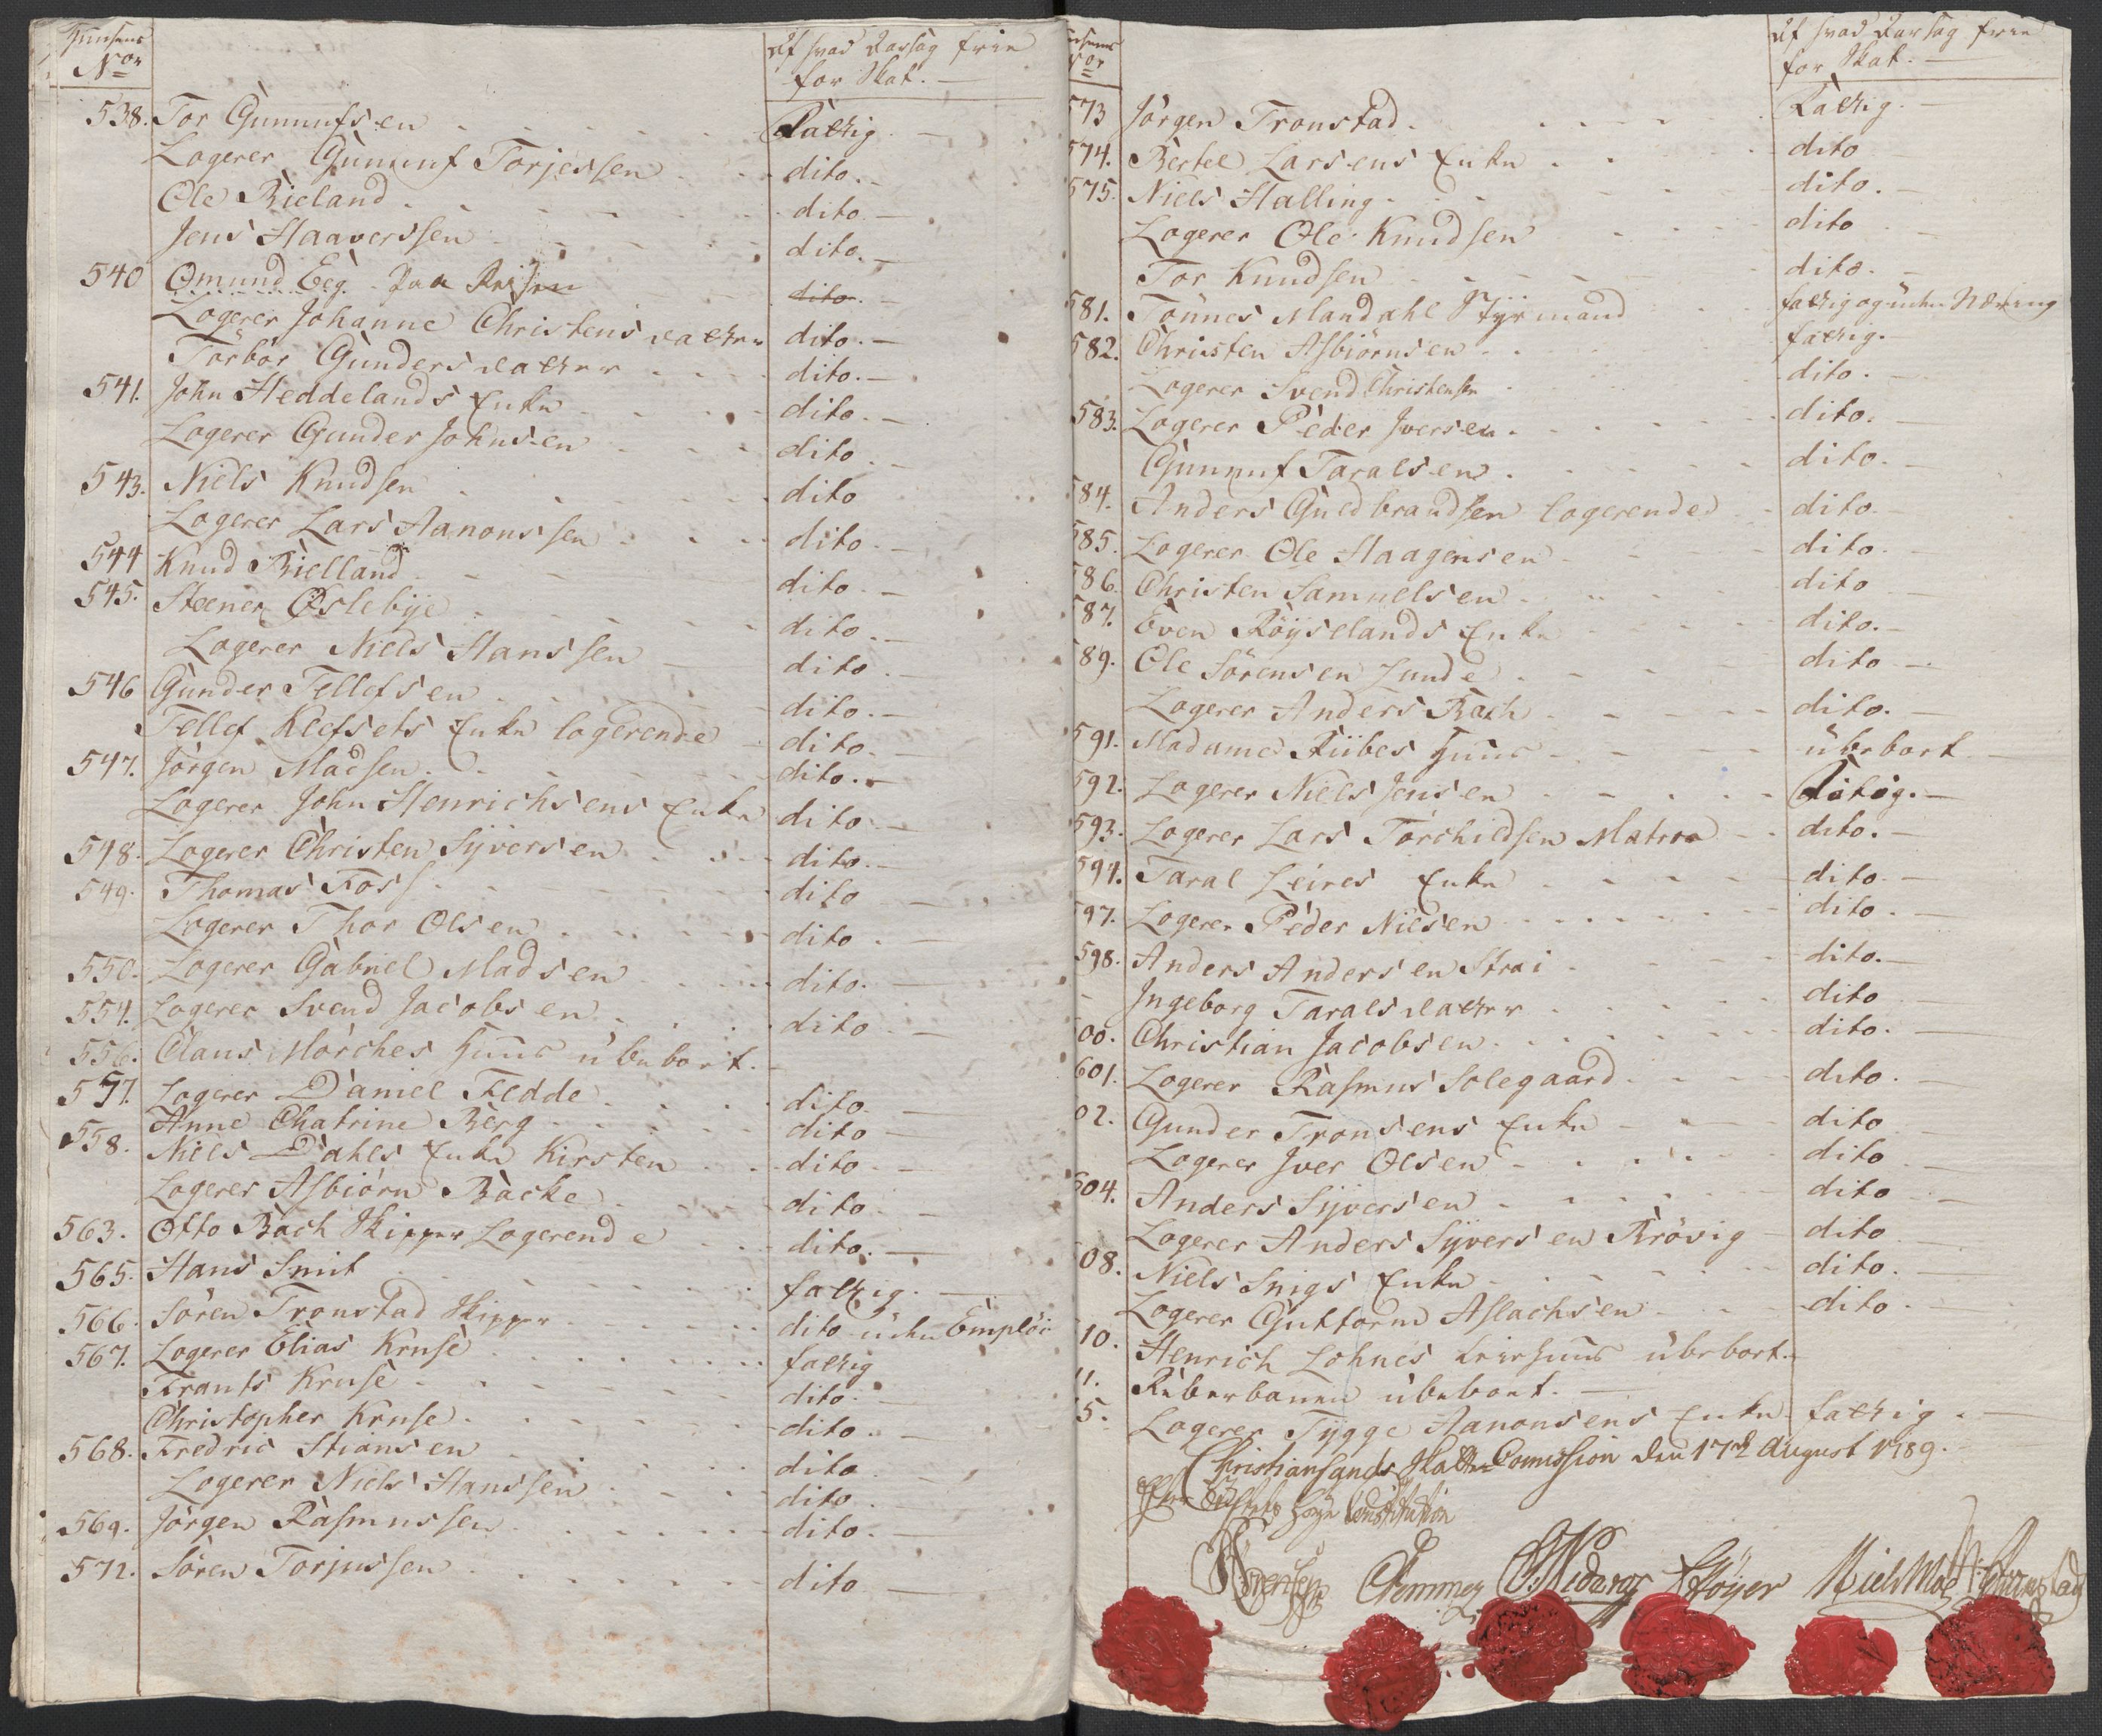 Huusens Af hvad Aarsag frie
No for Skat.
538. Tor Gunnufsen fattig
Logerer Gunnuf Torjessen dito
Ole Bieland dito
Jens Haaverssen dito
540 Omund Eeg paa Reisen dito
Logerer Johanne Christensdatter dito
Torbor Gundersdatter dito
541. John Heddelands Enke dito
Logerer Gunder Johnsen dito
543. Niels Knudsen dito
Logerer Lars Aanonssen dito
544 Knud Bielland dito
545. Steener Oslebye dito
Logerer Niels Hanssen dito
546 Gunder Tellefsen dito
Tellef Klefsets Enke logerende dito
547. Jörgen Madsen dito
Logerer John Henrichsens Enke dito
548. Logerer Christen Syversen dito
549. Thomas Foss dito
Logerer Thor Olsen dito
550. Logerer Gabriel Madsen dito
554. Logerer Svend Jacobsen dito
556. Claus Mörches Huus übeboet.
557. Logerer Daniel Fedde dito
Anne Chatrine Berg dito
558. Niels Dahls Enke Kirsten dito
Logerer Asbiörn Backe dito
563. Otto Bach Skipper Logerende dito
565. Hans Smit fattig
566. Sören Tronstad Skipper dito uden Emploi
567. Logerer Elias Kruse fattig
Frants Kruse dito
Christopher Kruse dito
568. Fredric Stiansen dito
Logerer Niels Hanssen dito
569. Jörgen Rasmussen dito
572. Sören Torjussen dito
Af hvad Aarsag frie
for Skat.
573 Jörgen Tronstad Fattig
574. Bertel Larsens Enke dito
575. Niels Halling dito
Logerer Ole Knudsen dito
Tor Knudsen dito
581. Tönnes Mandahl Styrmand fattig og uden Næring
582. Christen Asbiörnsen fattig
Logerer Svend Christensen dito
583. Logerer Peder Iversen dito
Gunnuf Taralsen dito
84. Anders Guldbrandsen logerende dito
585. Logerer Ole Haagensen dito
86. Christen Samuelsen dito
87. Even Röyselands Enke dito
89. Ole Sörensen Lunde dito
Logerer Anders Bach dito
591. Madame Riibes Huus übeboet
592. Logerer Niels Jensen fattig
593. Logerer Lars Torchildsen Matros dito
594. Taral Leires Enke dito
597. Logerer Peder Nielsen dito
598. Anders Andersen Strai dito
Ingeborg Taralsdatter dito
00. Christian Jacobsen dito
601. Logerer Rasmus Solegaard dito
02. Gunder Tronsens Enke dito
Logerer Iver Olsen dito
604. Anders Syversen dito
Logerer Anders Syversen Krövig dito
08. Niels Snigs Enke dito
Logerer Guttorm Aslachsen dito
10. Henrich Lohnes huus übeboet
11. Reberbanen übeboet.
5. Logerer Tygge Aanonsens Enke fattig
Christiansands Skatte Comission den 17de August 1789.
Constitution
Nideros Höyer Niels Moe